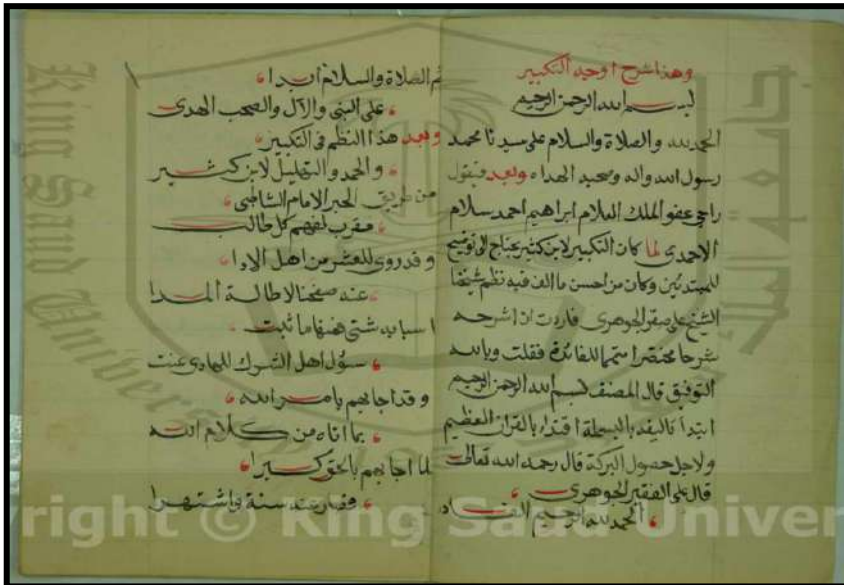 وهذا شرح اوجه التكبير
بسم الله الرحمن الرحيم
الحمد لله والصلاة والسلام على سيدنا محمد
رسول الله واله وصحبه الهداه وبعد فيقول
راجي عفو الملك السلام ابراهيم احمد سلام
الاحمدى لما كان التكبير لابن كثير يحتاج الى توضيح
للمبتدئين وكان من احسن ما الف فيه نظم شيخنا
الشيخ على صقر الجوهرى فاردت ان اشرحه
شرحا مختصرا متمما للفائدة فقلت وبالله
التوفيق قال المصنف بسم الله الرحمن الرحيم
ابتدأ تاليفه بالبسملة اقتداء بالقران العظيم
ولاجل حصول البركة قال رحمه الله تعالى
قال على الفقير الجوهرى
الحمد لله الرحيم
ثم الصلاة والسلام ابدا
على النبى والآل والصحب الهدى
وبعد هذا النظم فى التكبير
والحمد والتهليل لابن كثير
من طريق الحبر الامام الشاطبى
مقرب لفهم كل طالب
وقد روى للعشر من اهل الادا
عنه صفحنا لاطالة المدا
اسبابه شتى فمنها ما ثبت
سؤل اهل الشرك للهادى عنت
وقد اجابهم بامر الله
بما اتاه من كلام الله
لما اجابهم بالحق كبرا
فصار عند سنة واشتهرا
Copyright © King Saud University
King Saud University
جامعة الملك